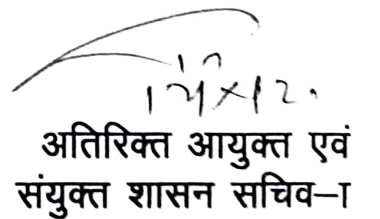 अतिरिक्त आयुक्त एवं
संयुक्त शासन सचिव–I